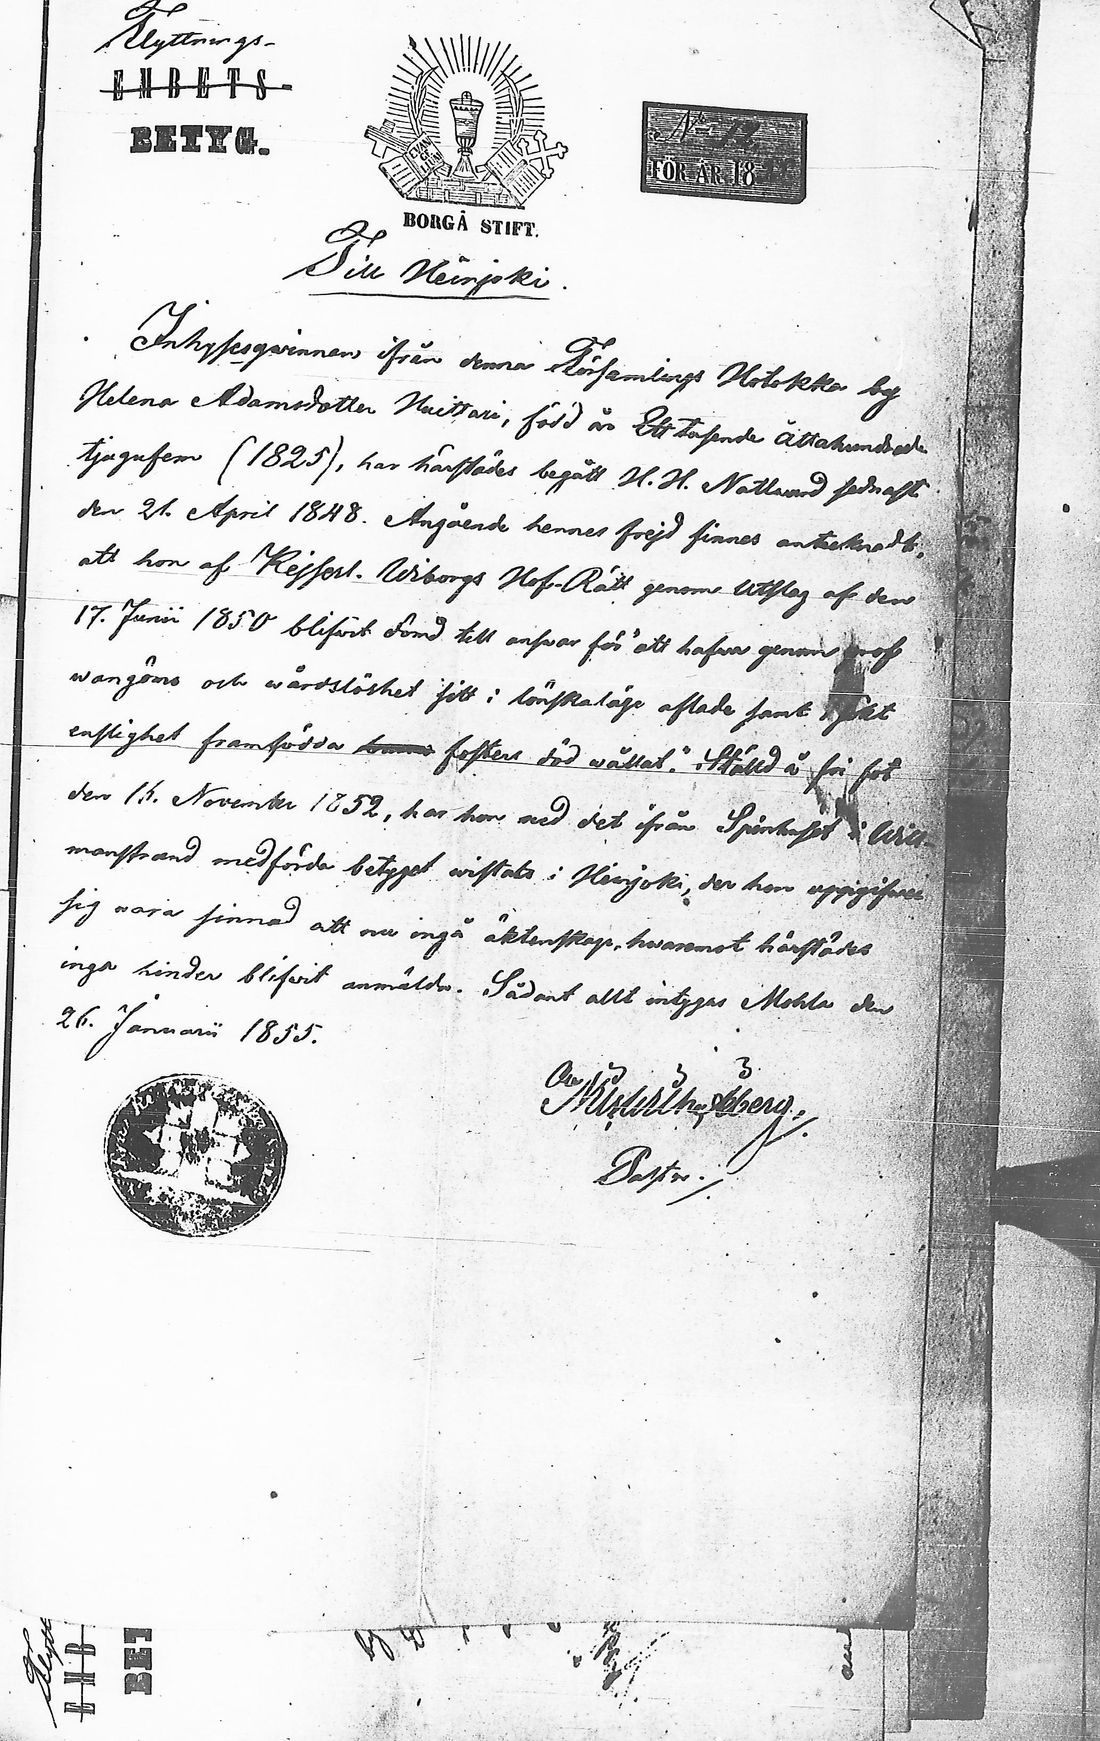 Flyttnings-
EMBETS-
BETYG.
EVAN
GE
LIUM
No 12
FÖR ÅR 18
BORGÅ STIFT.
Till Heinjoki.
Inhysesqwinnan ifrån denna Församlings Hotokka by
Helena Adamsdotter Huittari, född år Ett tusende åttahundrade
tjugufem (1825), har härstädes begått H. H. Nattvard sednast
den 21. April 1848. Angående hennes frejd finnes antecknadt,
att hon af Kejserl. Wiborgs Hof-Rätt genom Utslag af den
17. Junii 1850 blifvit dömd till answar för "att hafva genom grof
wangömo och wårdslöshet sitt i lönskaläge aflade samt i sökt
enslighet framfödda fosters död wållat." Ställd å fri fot
den 15. November 1852, har hon med det ifrån Spinhuset i Will-
manstrand medförda betyget wistats i Heinjoki, der hon uppgifvit
sig vara sinnad att nu ingå äktenskap, hwaremot härstädes
inga hinder blifvit anmälda. Sådant allt intygas Mohla den
26. Januarii 1855.
Pastor.
Flytt
EMB
BET